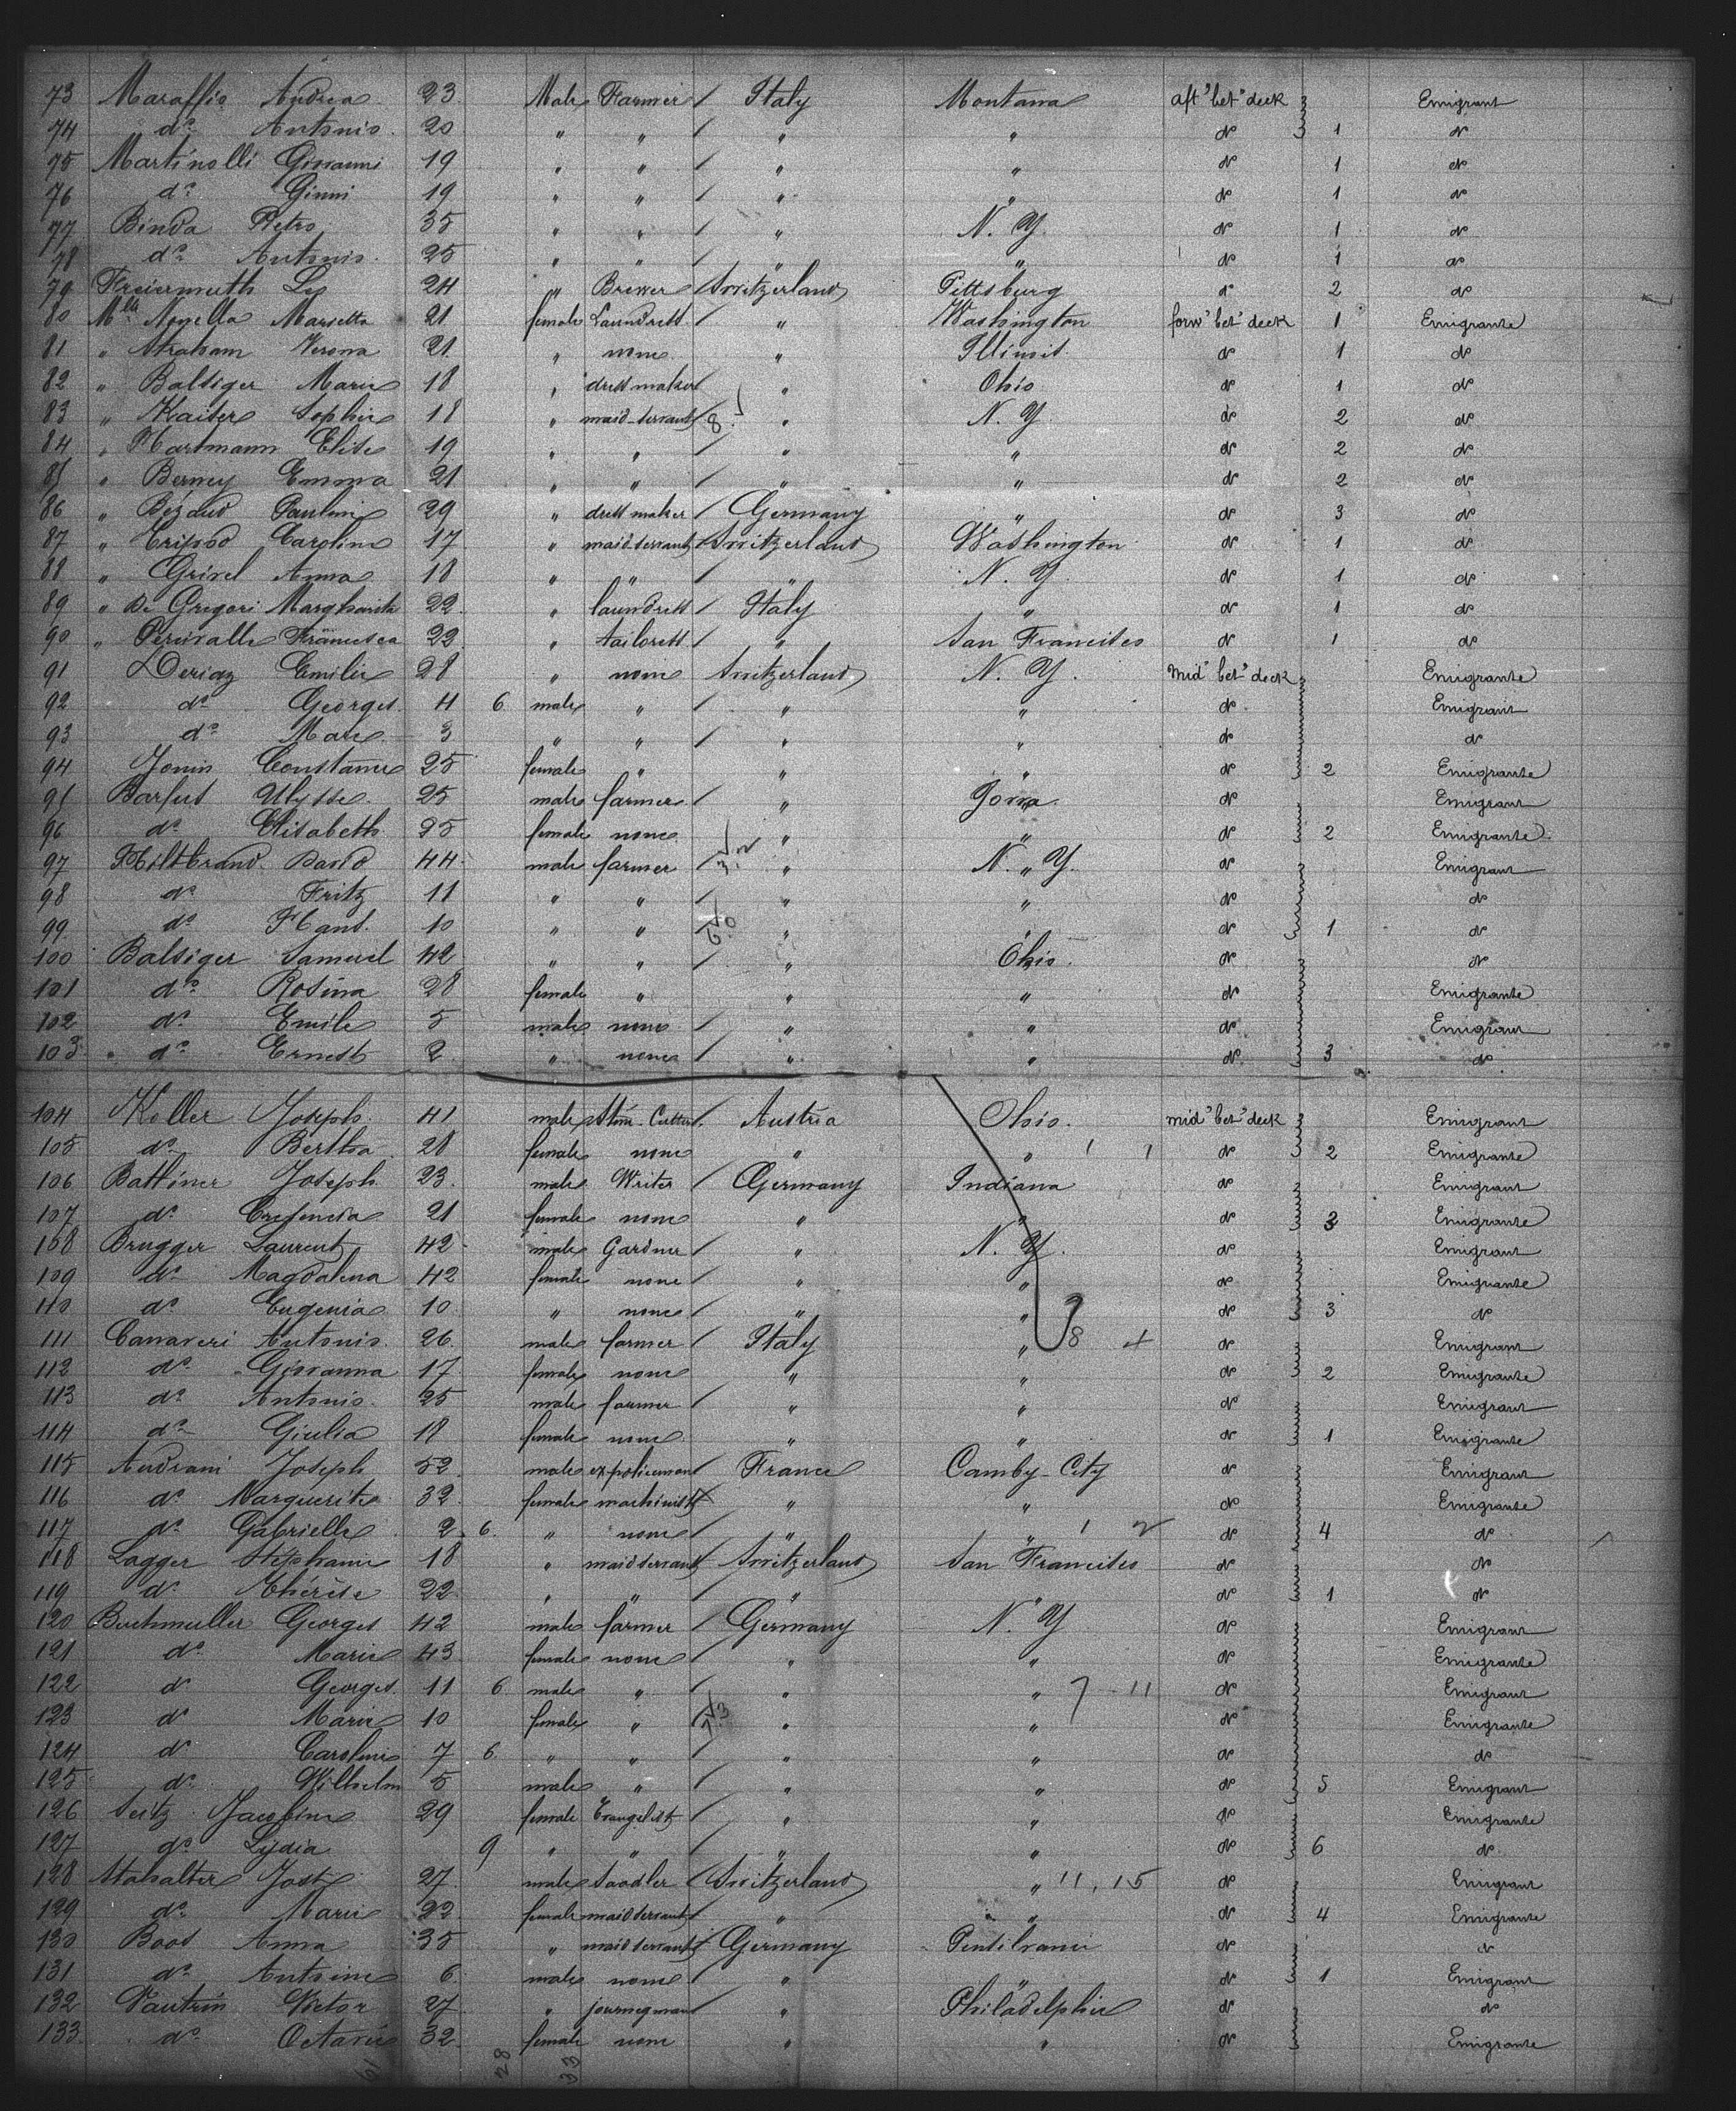 73 Maraffio Andrea 23 Male Farmer / Italy Montana aft "bet" deck Emigrant
74 do Antonio 20 " " / " " do 1 do
75 Martinolli Giovanni 19 " " / " " do 1 do
76 do Ginni 19 " " / " " do 1 do
77 Binda Pietro 35 " " / " N. Y. do 1 do
78 do Antonio 25 " " / " " do 1 do
79 Freiermuth Leo 24 " Brewer / Switzerland Pittsburg do 2 do
80 Mlle Marietta 21 female Laundress / " Washington forw "bet" deck 1 Emigrante
81 " Abraham Verena 21 " none " Illinois do 1 do
82 " Balsiger Marie 18 " dress maker / " Ohio do 1 do
83 " Kaiser Sophie 18 " maid-servant / 8 " N. Y. do 2 do
84 " Hartmann Elise 19 " " / " " do 2 do
85 " Berney Emma 21 " " / " " do 2 do
86 " Bézaud Pauline 29 " dress maker / Germany " do 3 do
87 " Tripod Caroline 17 " maid servant / Switzerland Washington do 1 do
88 " Grivel Anna 18 " " / " N. Y do 1 do
89 " De Gregori Margharita 22 " laundress / Italy " do 1 do
90 " Percivalle Francisca 22 " tailoress / " San Francisco do 1 do
91 Deriaz Emilie 28 " none Switzerland N. Y. mid "bet" deck Emigrante
92 do Georges 4 6 male " / " " do Emigrant
93 do Marc 3 " " / " " do do
94 Jonin Constance 25 female " " " do 2 Emigrante
95 Barfus Ulysse 25 male farmer / " Jowa do Emigrant
96 do Elisabeth 25 female none " " do 2 Emigrante
97 Hiltbrand David 44 male farmer / " N. " Y. do Emigrant
98 do Fritz 11 " " / " " do do
99 do Hans 10 " " " " do 1 do
100 Balsiger Samuel 42 " " / " Ohio. do do
101 do Rosina 28 female " " " do Emigrante
102 do Emile 5 male none / " " do Emigrant
103 do Ernest 2 " none / " " do 3 do
104 Koller Joseph 41 male Stone-Cutter / Austria Ohio. mid "bet" deck Emigrant
105 do Bertha 28 female none " " do 2 Emigrante
106 Battiner Joseph 23 male Writer / Germany Indiana do Emigrant
107 do Cresencia 21 female none " " do 2 Emigrante
108 Brugger Laurent 42 male Gardner / " N. Y. do Emigrant
109 do Magdalena 42 female none " " do Emigrante
110 do Eugenia 10 " none / " " do 3 do
111 Canaveri Antonio 26 male farmer / Italy " 8 do Emigrant
112 do Giovanna 17 female none " " do 2 Emigrante
113 do Antonio 25 male farmer / " " do Emigrant
114 do Giulia 18 female none " " do 1 Emigrante
115 Andrani Joseph 52 male expoliceman / France Camby-City do Emigrant
116 do Marguerite 32 female machinist " " do Emigrante
117 do Gabrielle 2 6 " none / " " do 4 do
118 Lagger Stéphanie 18 " maid servant / Switzerland San Francisco do do
119 do Thérèse 22 " " / " " do 1 do
120 Buchmuller Georges 42 male farmer / Germany N. Y do Emigrant
121 do Marie 43 female none " " do Emigrante
122 do Georges 11 6 male " / " " 7-11 do Emigrant
123 do Marie 10 female " " " do Emigrante
124 do Caroline 7 6 " " / " " do do
125 do Wilhelm 5 male " / " " do 5 Emigrant
126 Seitz Jacobine 29 female Evangelist / " " do Emigrante
127 do Lydia 9 " " / " " do 6 do
128 Stahalter Jost 27 male Saadler / Switzerland " 11, 15 do Emigrant
129 do Marie 22 female maid servant / " " do 4 Emigrante
130 Boos Anna 35 " maid servant / Germany Pensilvanie do do
131 do Antoine 6 male none / " " do 1 Emigrant
132 Vautrin Victor 27 " journeyman / " Philadelphie do do
133 do Octavie 32 female none " " do Emigrante
28 33